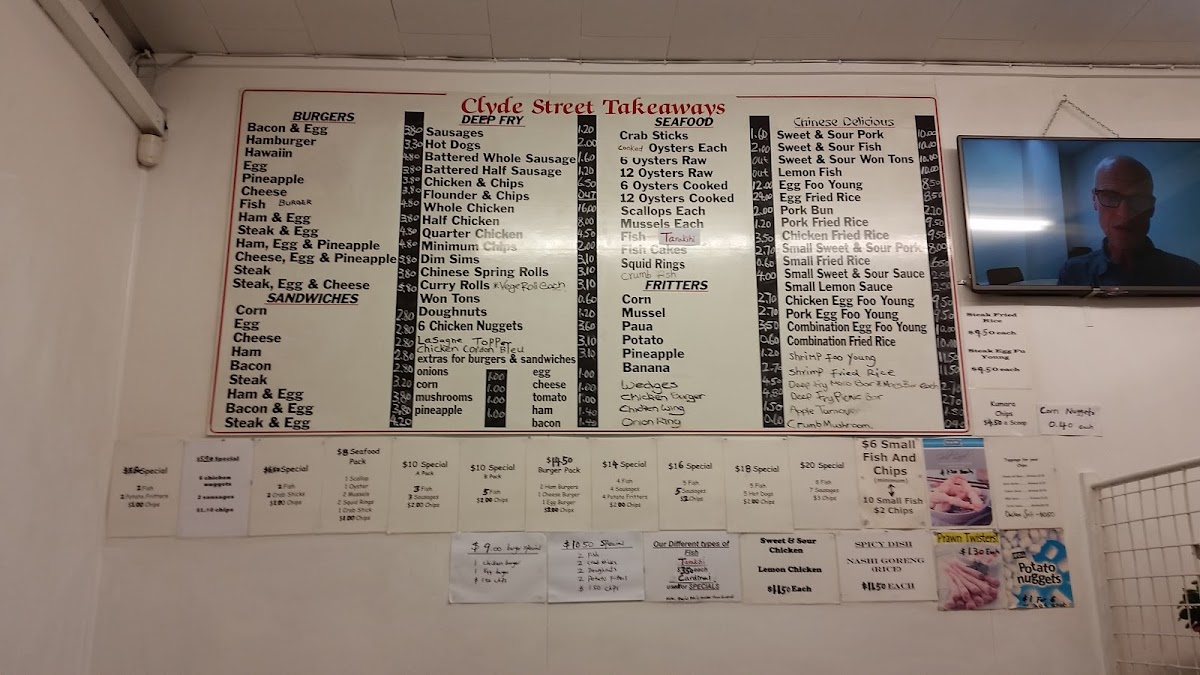 Clyde Street Takeaways
BURGERS
Bacon & Egg 3.80
Hamburger 3.30
Hawaiin 4.80
Egg
Pineapple
Cheese
Fish BURGER
Ham & Egg
Steak & Egg
Ham, Egg & Pineapple
Cheese, Egg & Pineapple
Steak
Steak, Egg & Cheese
SANDWICHES
Corn 2.80
Egg 2.80
Cheese 2.80
Ham 2.80
Bacon 2.80
Steak 3.20
Ham & Egg 3.80
Bacon & Egg 3.80
Steak & Egg 4.20
DEEP FRY
Sausages 1.20
Hot Dogs 2.00
Battered Whole Sausage 1.60
Battered Half Sausage 1.20
Chicken & Chips 6.50
Flounder & Chips OUT
Whole Chicken 16.00
Half Chicken 8.00
Quarter Chicken 4.50
Minimum Chips 2.00
Dim Sims 3.10
Chinese Spring Rolls 3.10
Curry Rolls * Vege Roll Each 3.10
Won Tons 0.60
Doughnuts 1.20
6 Chicken Nuggets 3.60
Lasagne Topper 3.10
Chicken Cordon Bleu 3.10
extras for burgers & sandwiches
onions 1.00 egg 1.00
corn 1.00 cheese 1.00
mushrooms 1.00 tomato 1.00
pineapple 1.00 ham 1.40
bacon 1.40
SEAFOOD
Crab Sticks 1.60
cooked Oysters Each 2.00
6 Oysters Raw out
12 Oysters Raw out
6 Oysters Cooked 12.00
12 Oysters Cooked 24.00
Scallops Each 2.00
Mussels Each 1.20
Fish Tarakhi 3.50
Fish Cakes 2.70
Squid Rings 0.60
Crumb Fish 4.00
FRITTERS
Corn 2.70
Mussel 2.70
Paua 3.50
Potato 0.60
Pineapple 1.20
Banana 2.70
Wedges 4.50
Chicken Burger 4.80
Chicken Wing 1.50
Onion Ring 0.60
Chinese Delicious
Sweet & Sour Pork 10.00
Sweet & Sour Fish
Sweet & Sour Won Tons 10.00
Lemon Fish 10.00
Egg Foo Young 8.50
Egg Fried Rice 8.50
Pork Bun 2.10
Pork Fried Rice 9.50
Chicken Fried Rice 9.50
Small Sweet & Sour Pork 8.00
Small Fried Rice 6.50
Small Sweet & Sour Sauce 2.50
Small Lemon Sauce 2.50
Chicken Egg Foo Young 9.50
Pork Egg Foo Young 9.50
Combination Egg Foo Young
Combination Fried Rice
Shrimp Foo Young 11.50
Shrimp Fried Rice 11.50
Deep Fry Moro Bar & Mars Bar each
Deep Fry Picnic Bar 2.70
Apple Turnover
Crumb Mushroom
Steak Fried
Rice
$9.50 each
Steak Egg Fu
Young
$9.50 each
Kumara
Chips
$4.50 a Scoop
Corn Nuggets
0.40 each
Special
2 Fish
2 Potato Fritters
Chips
Special
6 chicken
nuggets
2 sausages
$1.50 chips
Special
2 Fish
2 Crab Sticks
Chips
$8 Seafood
Pack
1 Scallop
1 Oyster
2 Mussels
2 Squid Rings
1 Crab Stick
Chips
$10 Special
A Pack
3 Fish
3 Sausages
$2.00 Chips
$10 Special
B Pack
5 Fish
Chips
$14.50
Burger Pack
2 Ham Burgers
1 Cheese Burger
1 Egg Burger
Chips
$14 Special
4 Fish
4 Sausages
4 Potato Fritters
$2.00 Chips
$16 Special
5 Fish
5 Sausages
Chips
$18 Special
5 Fish
3 Hot Dogs
$2.00 Chips
$20 Special
8 Fish
7 Sausages
$3 Chips
$6 Small
Fish And
Chips
(minimum)
10 Small Fish
$2 Chips
$9.00 burger special
1 chicken burger
1 Egg burger
$1.50 chips
$10.50 Special
2 Fish
2 crab sticks
2 Doughnuts
2 Potato Fritters
$1.50 chips
Our Different types of
Fish
Tarakhi
$3.50 each
Cardinal
used for SPECIALS
Sweet & Sour
Chicken
Lemon Chicken
$11.50 Each
SPICY DISH
NASHI GORENG
(RICE)
$11.50 EACH
Prawn Twisters!
$1.30 Each
Potato
nuggets